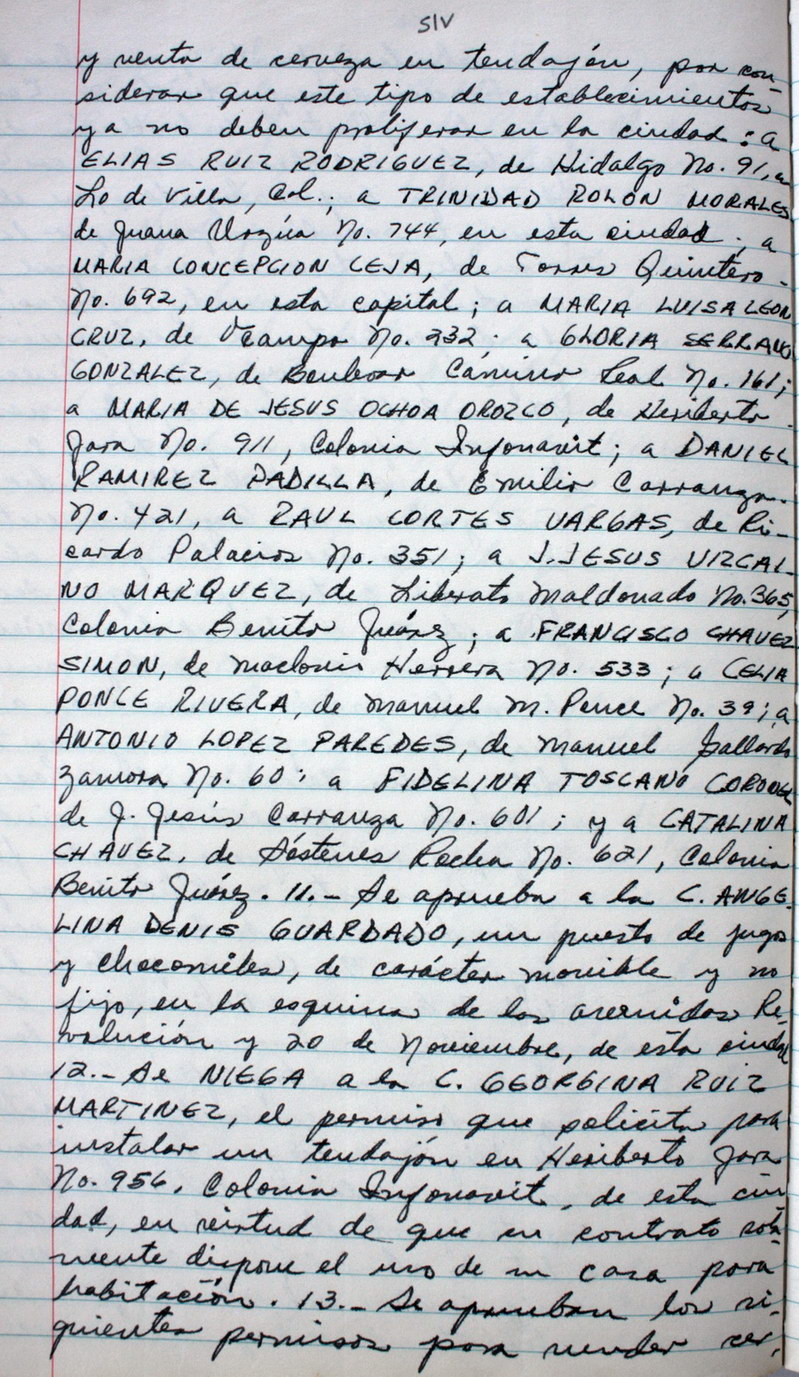 SIV
y venta de cerveza en tendajón, por con-
siderar que este tipo de establecimientos
ya no deben proliferar en la ciudad: a
ELIAS RUIZ RODRIGUEZ, de Hidalgo No. 91, a
Lo de Villa, Col.; a TRINIDAD ROLON MORALES
de Juana Urzúa No. 744, en esta ciudad; a
MARIA CONCEPCION CEJA, de Torres Quintero
No. 692, en esta capital; a MARIA LUISA LEON
CRUZ, de Ocampo No. 232; a GLORIA SERRANO
GONZALEZ, de Boulevar Camino Real No. 161;
a MARIA DE JESUS OCHOA OROZCO, de Heriberto
Jara No. 911, Colonia Infonavit; a DANIEL
RAMIREZ PADILLA, de Emilio Carranza
No. 421, a RAUL CORTES VARGAS, de Ri-
cardo Palacios No. 351; a J. JESUS VIZCAI-
NO MARQUEZ, de Liberato Maldonado No. 365,
Colonia Benito Juárez; a FRANCISCO CHAVEZ
SIMON, de Maclovio Herrera No. 533; a CELIA
PONCE RIVERA, de Manuel M. Ponce No. 39; a
ANTONIO LOPEZ PAREDES, de Manuel Gallardo
Zamora No. 60; a FIDELINA TOSCANO
de J. Jesús Carranza No. 601; y a CATALINA
CHAVEZ, de Sóstenes Rocha No. 621, Colonia
Benito Juárez. 11.- Se aprueba a la C. ANGE-
LINA DENIS GUARDADO, un puesto de jugos
y chocomiles, de carácter movible y no
fijo, en la esquina de las avenidas Re-
volución y 20 de Noviembre, de esta ciudad
12.- Se NIEGA a la C. GEORGINA RUIZ
MARTINEZ, el permiso que solicita para
instalar un tendajón en Heriberto Jara
No. 956, Colonia Infonavit, de esta ciu-
dad, en virtud de que su contrato sola-
mente dispone el uso de su casa para
habitación. 13.- Se aprueban los si-
guientes permisos para vender cer-